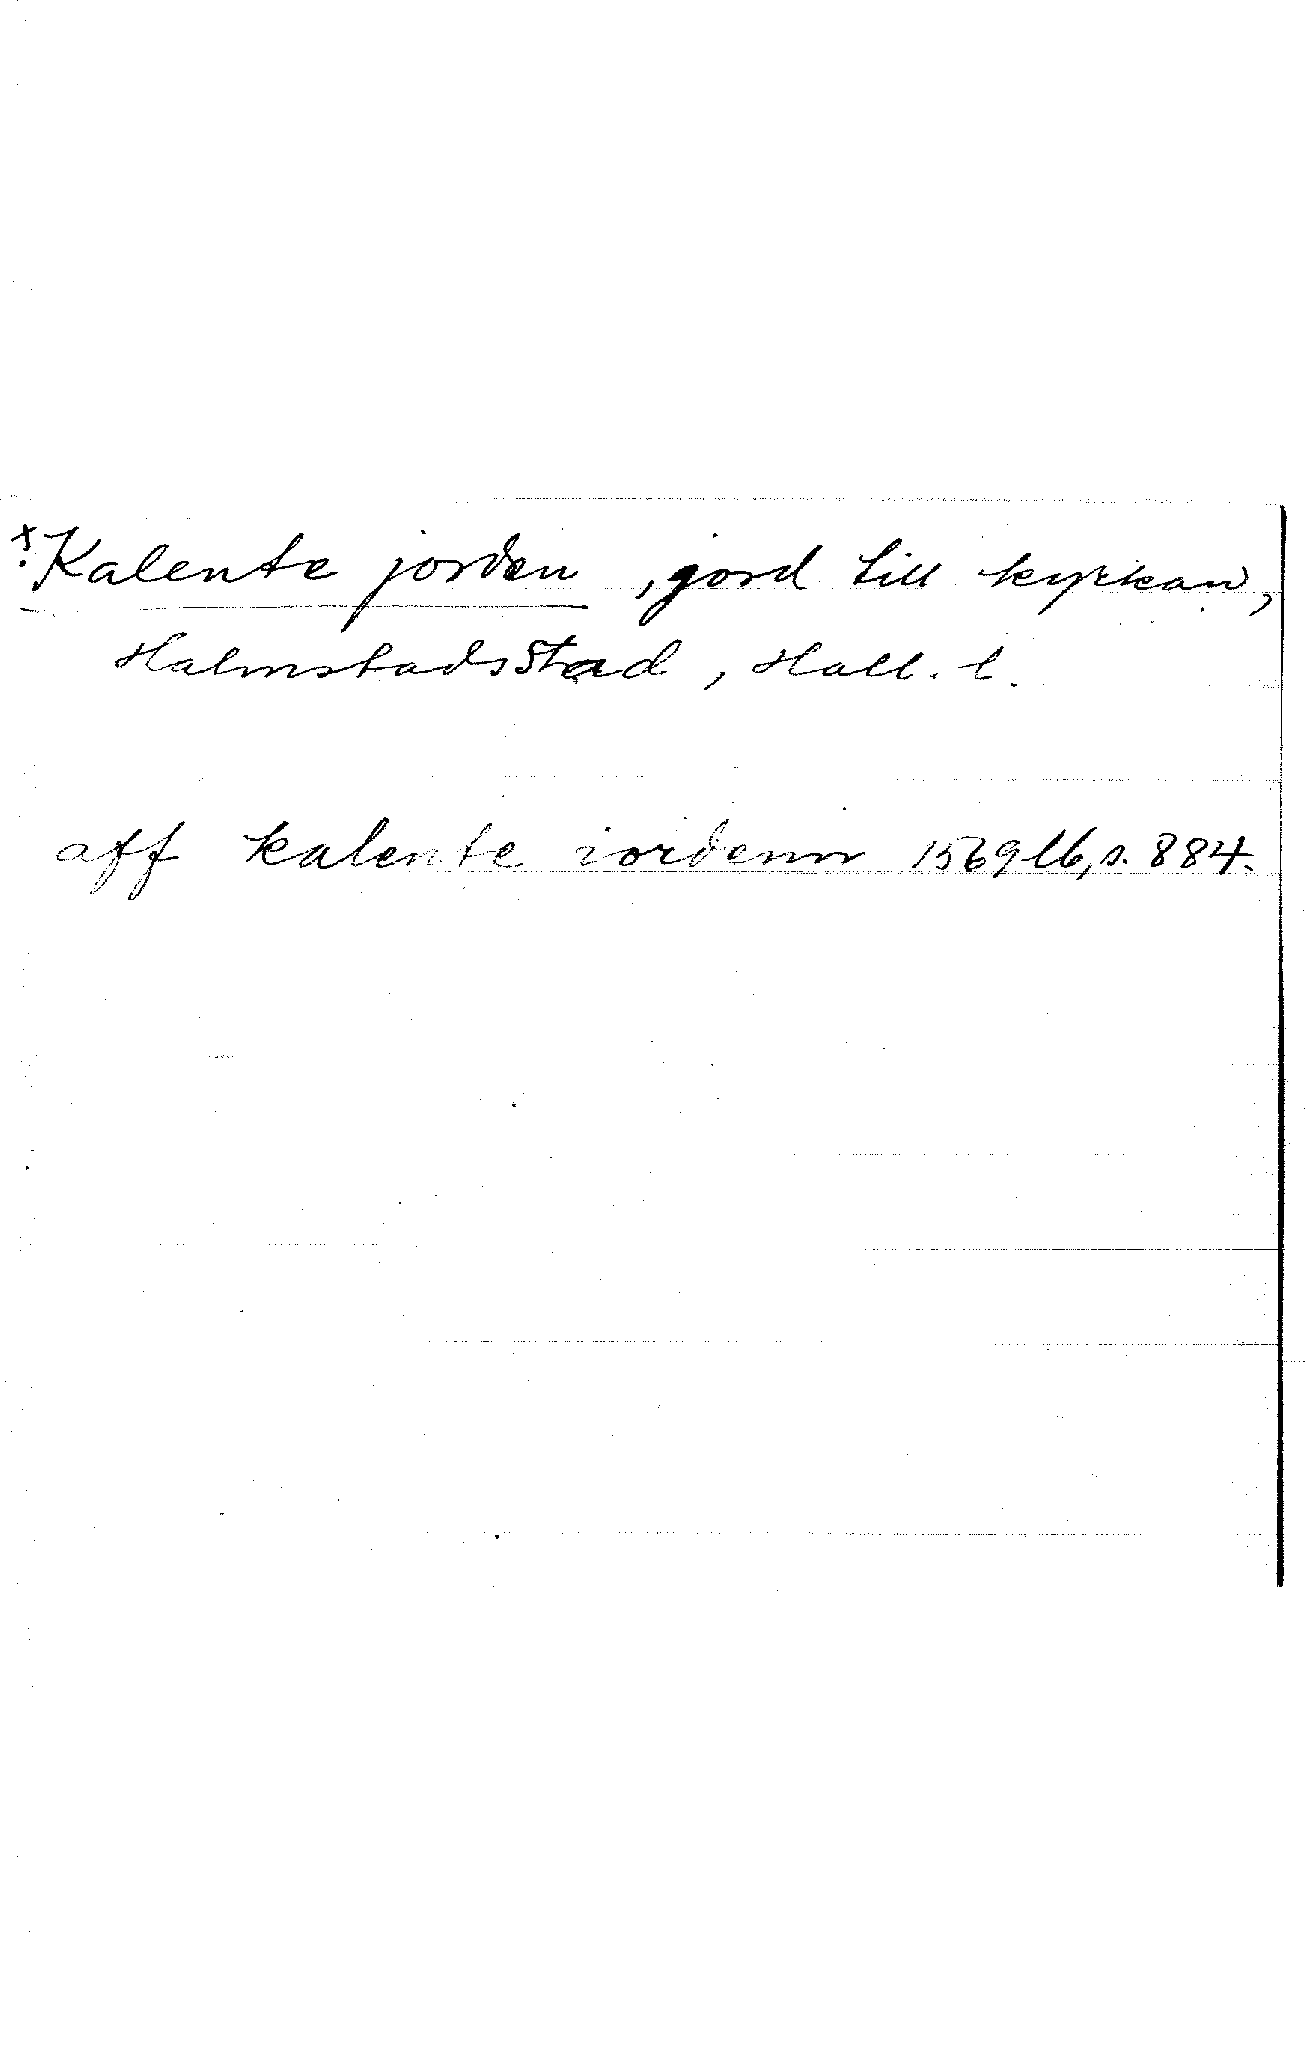 *Kalente jorden, jord till kyrkan,
Halmstads stad, Hall. l.
aff kalente iordenn 1569 lb, s. 884.